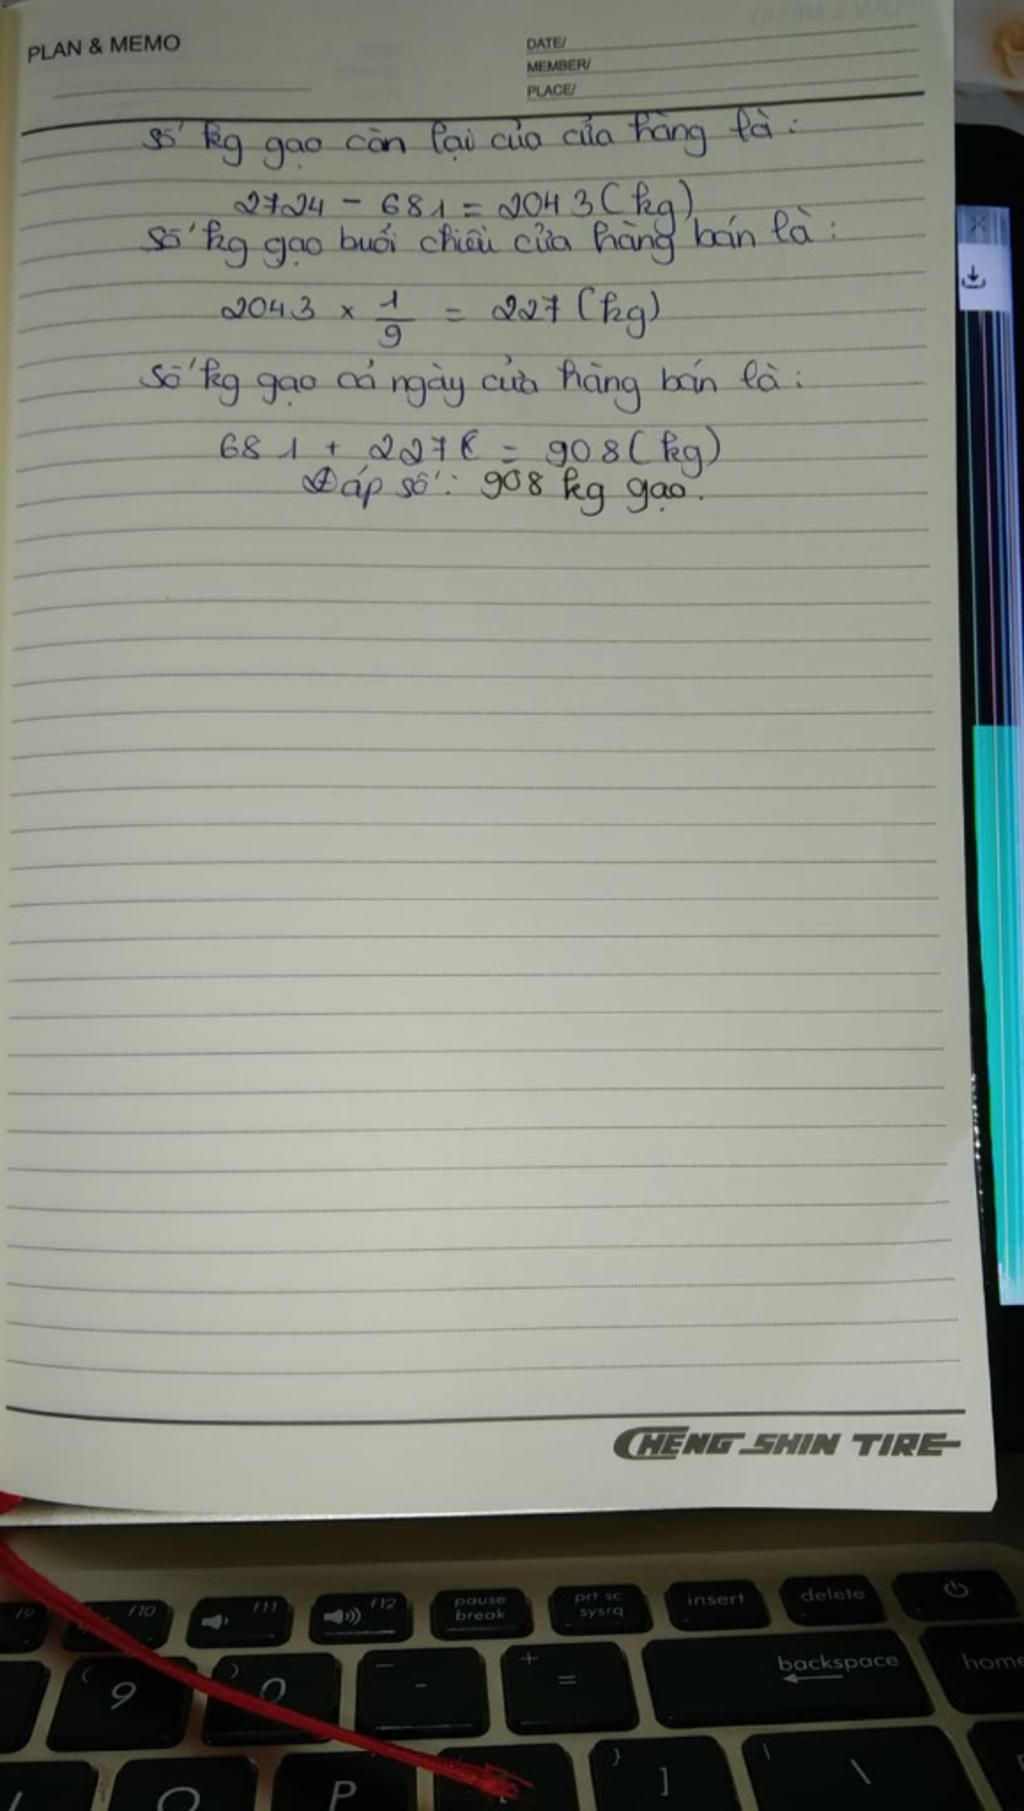 PLAN & MEMO
DATE/
MEMBER/
PLACE/
Số kg gạo còn lại của cửa hàng là:
2724 - 681 = 2043 (kg)
Số kg gạo buổi chiều cửa hàng bán là:
2043 × 1/9 = 227 (kg)
Số kg gạo cả ngày cửa hàng bán là:
681 + 227 = 908 (kg)
Đáp số: 908 kg gạo.
CHENG SHIN TIRE
f9 f10 f11 f12 pause break prt sc sysrq insert delete
( 9 ) 0 - + = backspace home
O P } ] | \